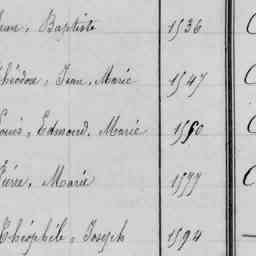 Baptiste 1536
Théodore, Jean, Marie 1547
Louis, Edmond, Marie 1560
Marie 1577
Théophile, Joseph 1594